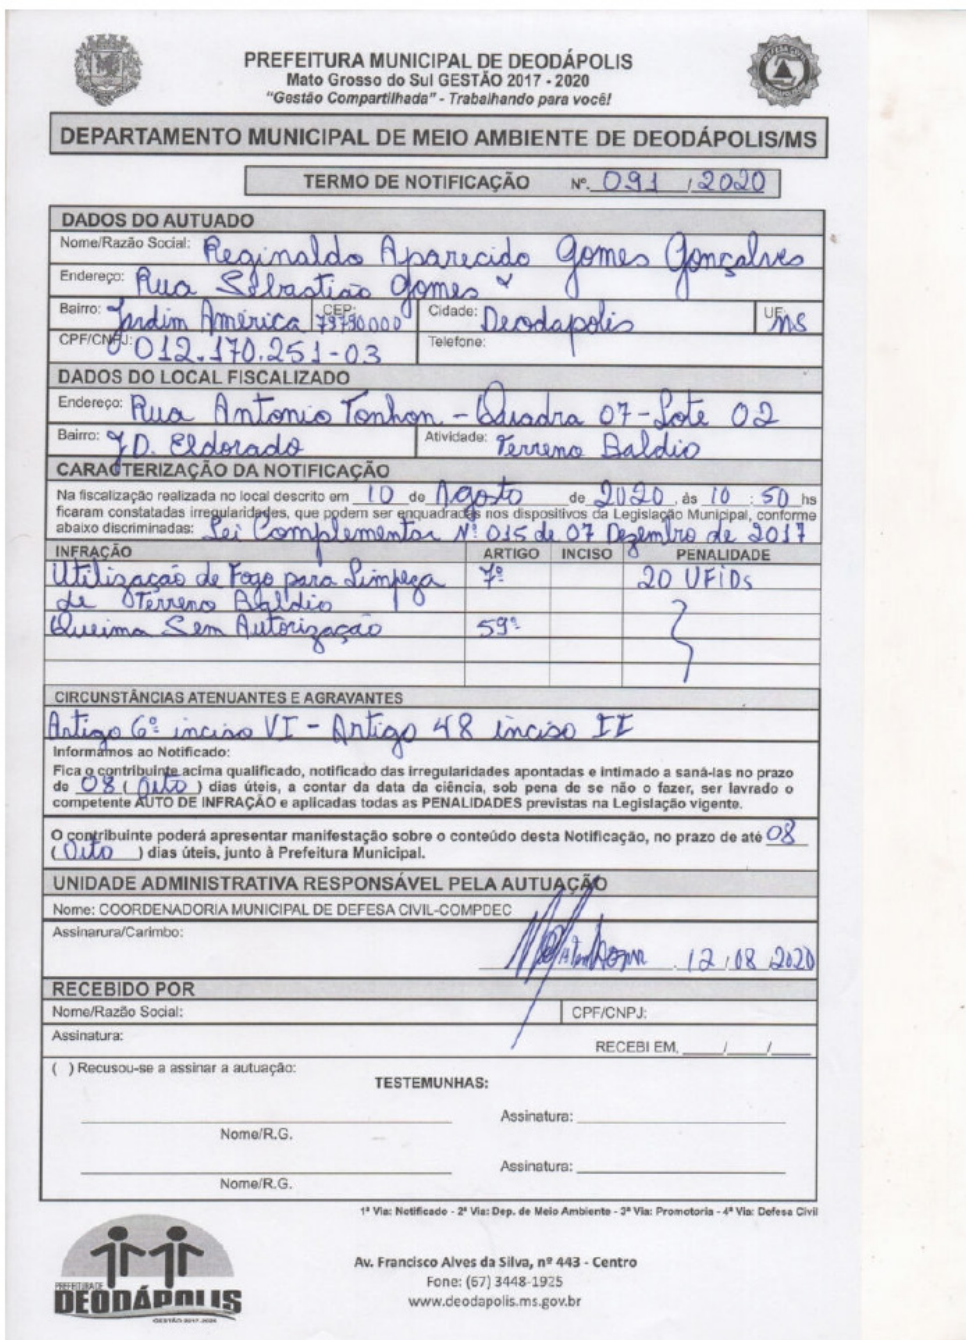 PREFEITURA MUNICIPAL DE DEODÁPOLIS
Mato Grosso do Sul GESTÃO 2017 - 2020
"Gestão Compartilhada" - Trabalhando para você!
DEPARTAMENTO MUNICIPAL DE MEIO AMBIENTE DE DEODÁPOLIS/MS
TERMO DE NOTIFICAÇÃO Nº. 091 / 2020
DADOS DO AUTUADO
Nome/Razão Social: Reginaldo Aparecido Gomes Gonçalves
Endereço: Rua Sebastião Gomes
Bairro: Jardim América CEP: 79790000 Cidade: Deodapolis UF: MS
CPF/CNPJ: 012.170.251-03 Telefone:
DADOS DO LOCAL FISCALIZADO
Endereço: Rua Antonio Tonhon - Quadra 07 - Lote 02
Bairro: JD. Eldorado Atividade: Terreno Baldio
CARACTERIZAÇÃO DA NOTIFICAÇÃO
Na fiscalização realizada no local descrito em 10 de Agosto de 2020, às 10 : 50 hs
ficaram constatadas irregularidades, que podem ser enquadradas nos dispositivos da Legislação Municipal, conforme
abaixo discriminadas: Lei Complementar Nº 015 de 07 Dezembro de 2017
INFRAÇÃO ARTIGO INCISO PENALIDADE
Utilização de Fogo para Limpeza 7º 20 UFIDs
de Terreno Baldio
Queima Sem Autorização 59º
CIRCUNSTÂNCIAS ATENUANTES E AGRAVANTES
Artigo 6º inciso VI - Artigo 48 inciso II
Informamos ao Notificado:
Fica o contribuinte acima qualificado, notificado das irregularidades apontadas e intimado a saná-las no prazo
de 08 ( Oito ) dias úteis, a contar da data da ciência, sob pena de se não o fazer, ser lavrado o
competente AUTO DE INFRAÇÃO e aplicadas todas as PENALIDADES previstas na Legislação vigente.
O contribuinte poderá apresentar manifestação sobre o conteúdo desta Notificação, no prazo de até 08
( Oito ) dias úteis, junto à Prefeitura Municipal.
UNIDADE ADMINISTRATIVA RESPONSÁVEL PELA AUTUAÇÃO
Nome: COORDENADORIA MUNICIPAL DE DEFESA CIVIL-COMPDEC
Assinarura/Carimbo:
12 / 08 / 2020
RECEBIDO POR
Nome/Razão Social: CPF/CNPJ:
Assinatura: RECEBI EM, ____/____/____
( ) Recusou-se a assinar a autuação:
TESTEMUNHAS:
Assinatura:
Nome/R.G.
Assinatura:
Nome/R.G.
1ª Via: Notificado - 2ª Via: Dep. de Meio Ambiente - 3ª Via: Promotoria - 4ª Via: Defesa Civil
PREFEITURA DE
DEODÁPOLIS
GESTÃO 2017-2020
Av. Francisco Alves da Silva, nº 443 - Centro
Fone: (67) 3448-1925
www.deodapolis.ms.gov.br